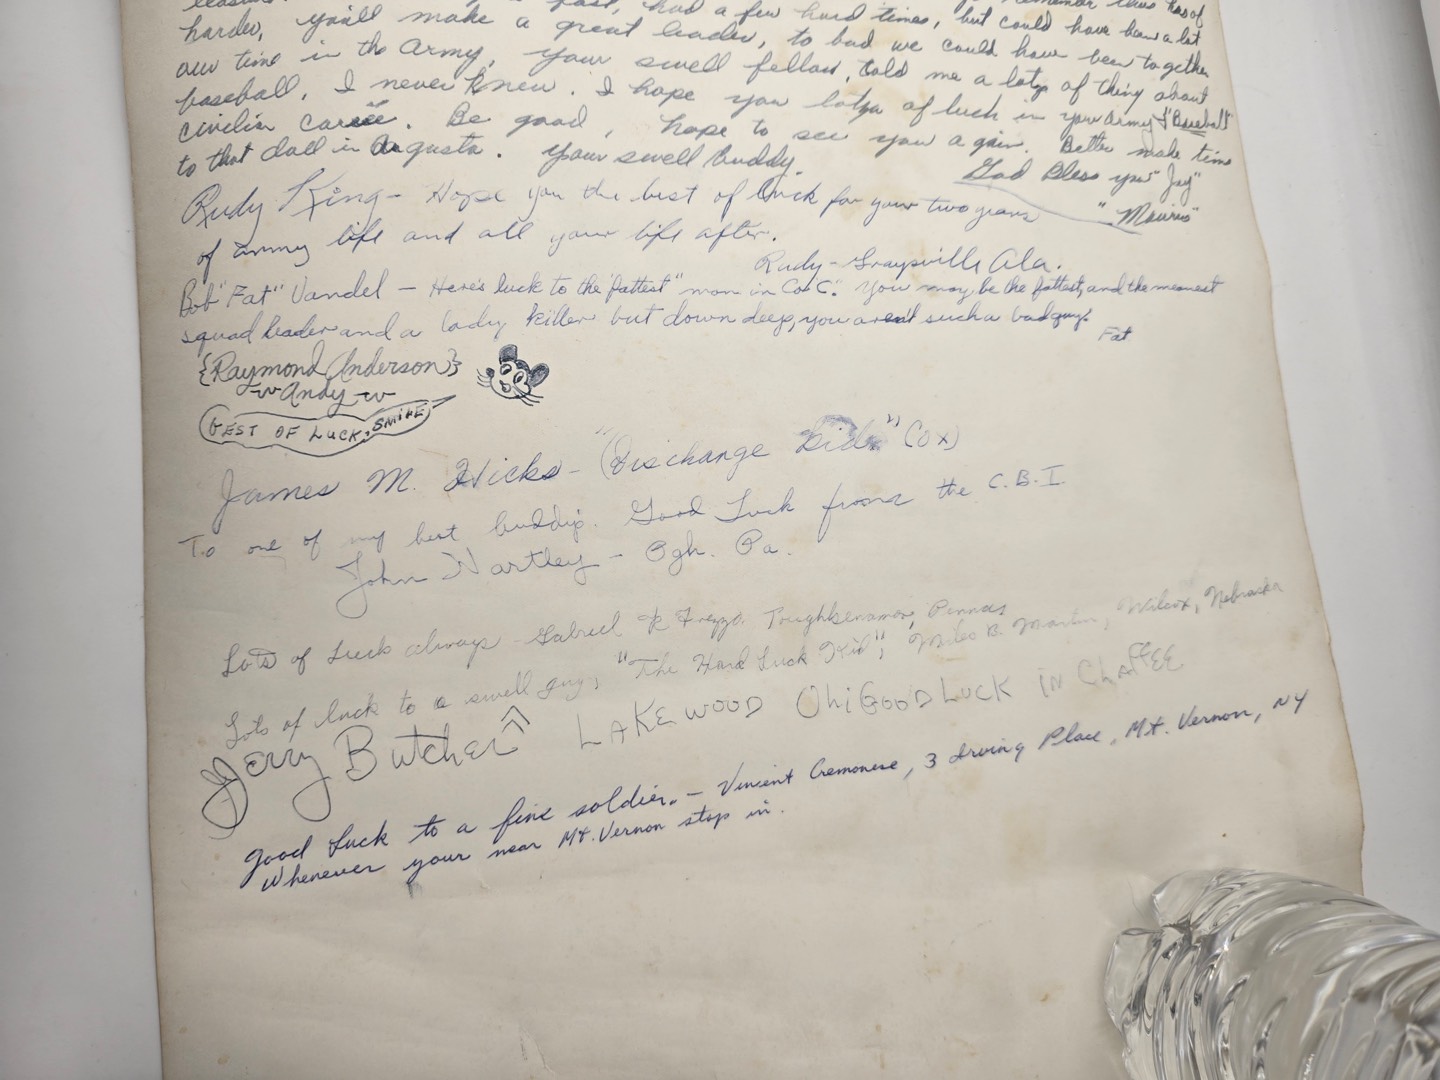 fast, had a few hard times, but could have been a lot
harder, you'll make a great leader, to bad we could have been together
our time in the Army, your swell fellow, told me a lotp of thing about
baseball, I never knew. I hope you lotza of luck in your Army & "Baseball"
civilin career. Be good, hope to see you again. Better make time
to that doll in Augusta. your swell buddy.
God Bless you "Jay"
"Maurio"
Rudy King - Hope you the best of luck for your two years
of army life and all your life after.
Rudy - Graysville Ala.
Bob "Fat" Vandel - Here's luck to the "fattest" man in Co "C." You may be the fattest, and the meanest
squad leader and a lady killer but down deep, you aren't such a bad guy.
Fat
{Raymond Anderson}
Andy
BEST OF LUCK, SMILE
James M. Hicks - "(Dischange Kid)" (Ox)
To one of my best buddip. Good Luck from the C.B.I.
John Hartley - Pgh. Pa.
Lots of Luck always - Gabriel R Frezzo. Toughkenamon, Penna
Lots of luck to a swell guy, "The Hard Luck Kid", Miles B. Martin, Wilcox, Nebraska
Jerry Butcher LAKEWOOD OhiO GOOD LUCK IN ChAFFEE
Good Luck to a fine soldier. - Vincent Cremonese, 3 Irving Place, Mt. Vernon, NY
Whenever your near Mt. Vernon stop in.